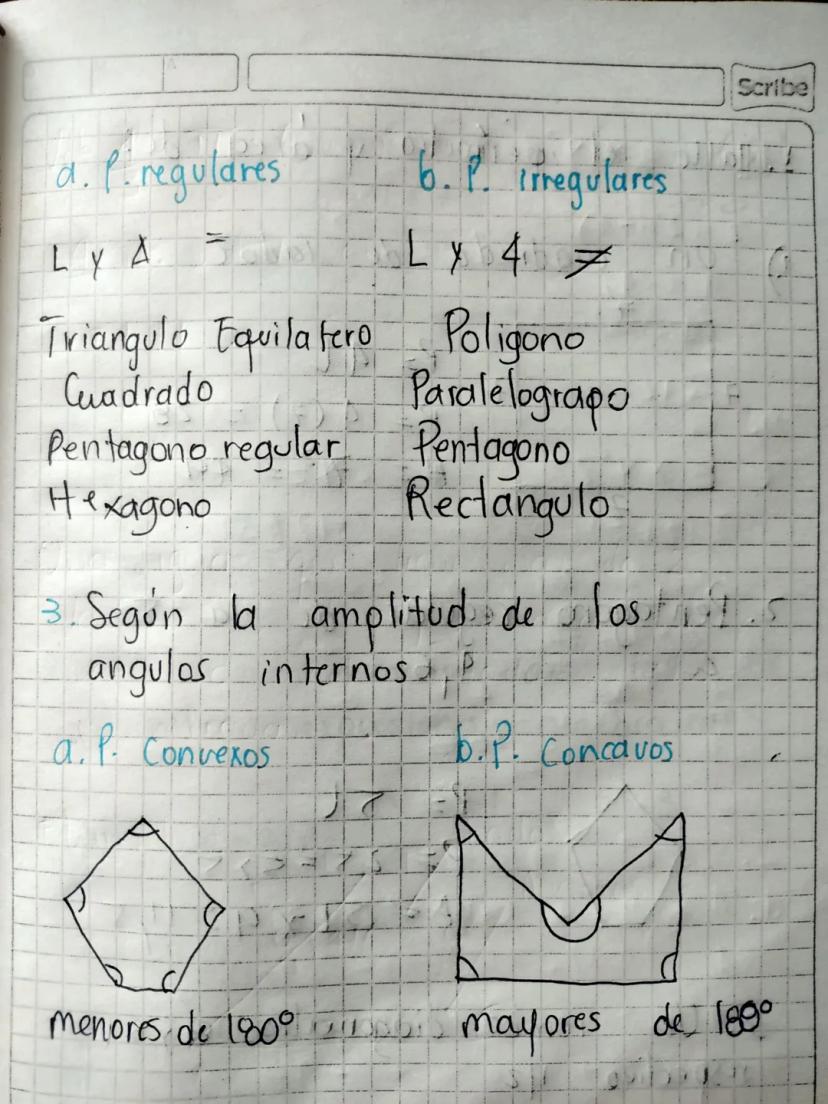 Scribe
a. P. regulares
b. P. irregulares
L y Δ =
L y 4 ≠
Triangulo Equilatero
Poligono
Cuadrado
Paralelograpo
Pentagono regular
Pentagono
Hexagono
Rectangulo
3. Según la amplitud de los
angulos internos
a. P. Convexos
b. P. Concavos
menores de 180°
mayores de 180°